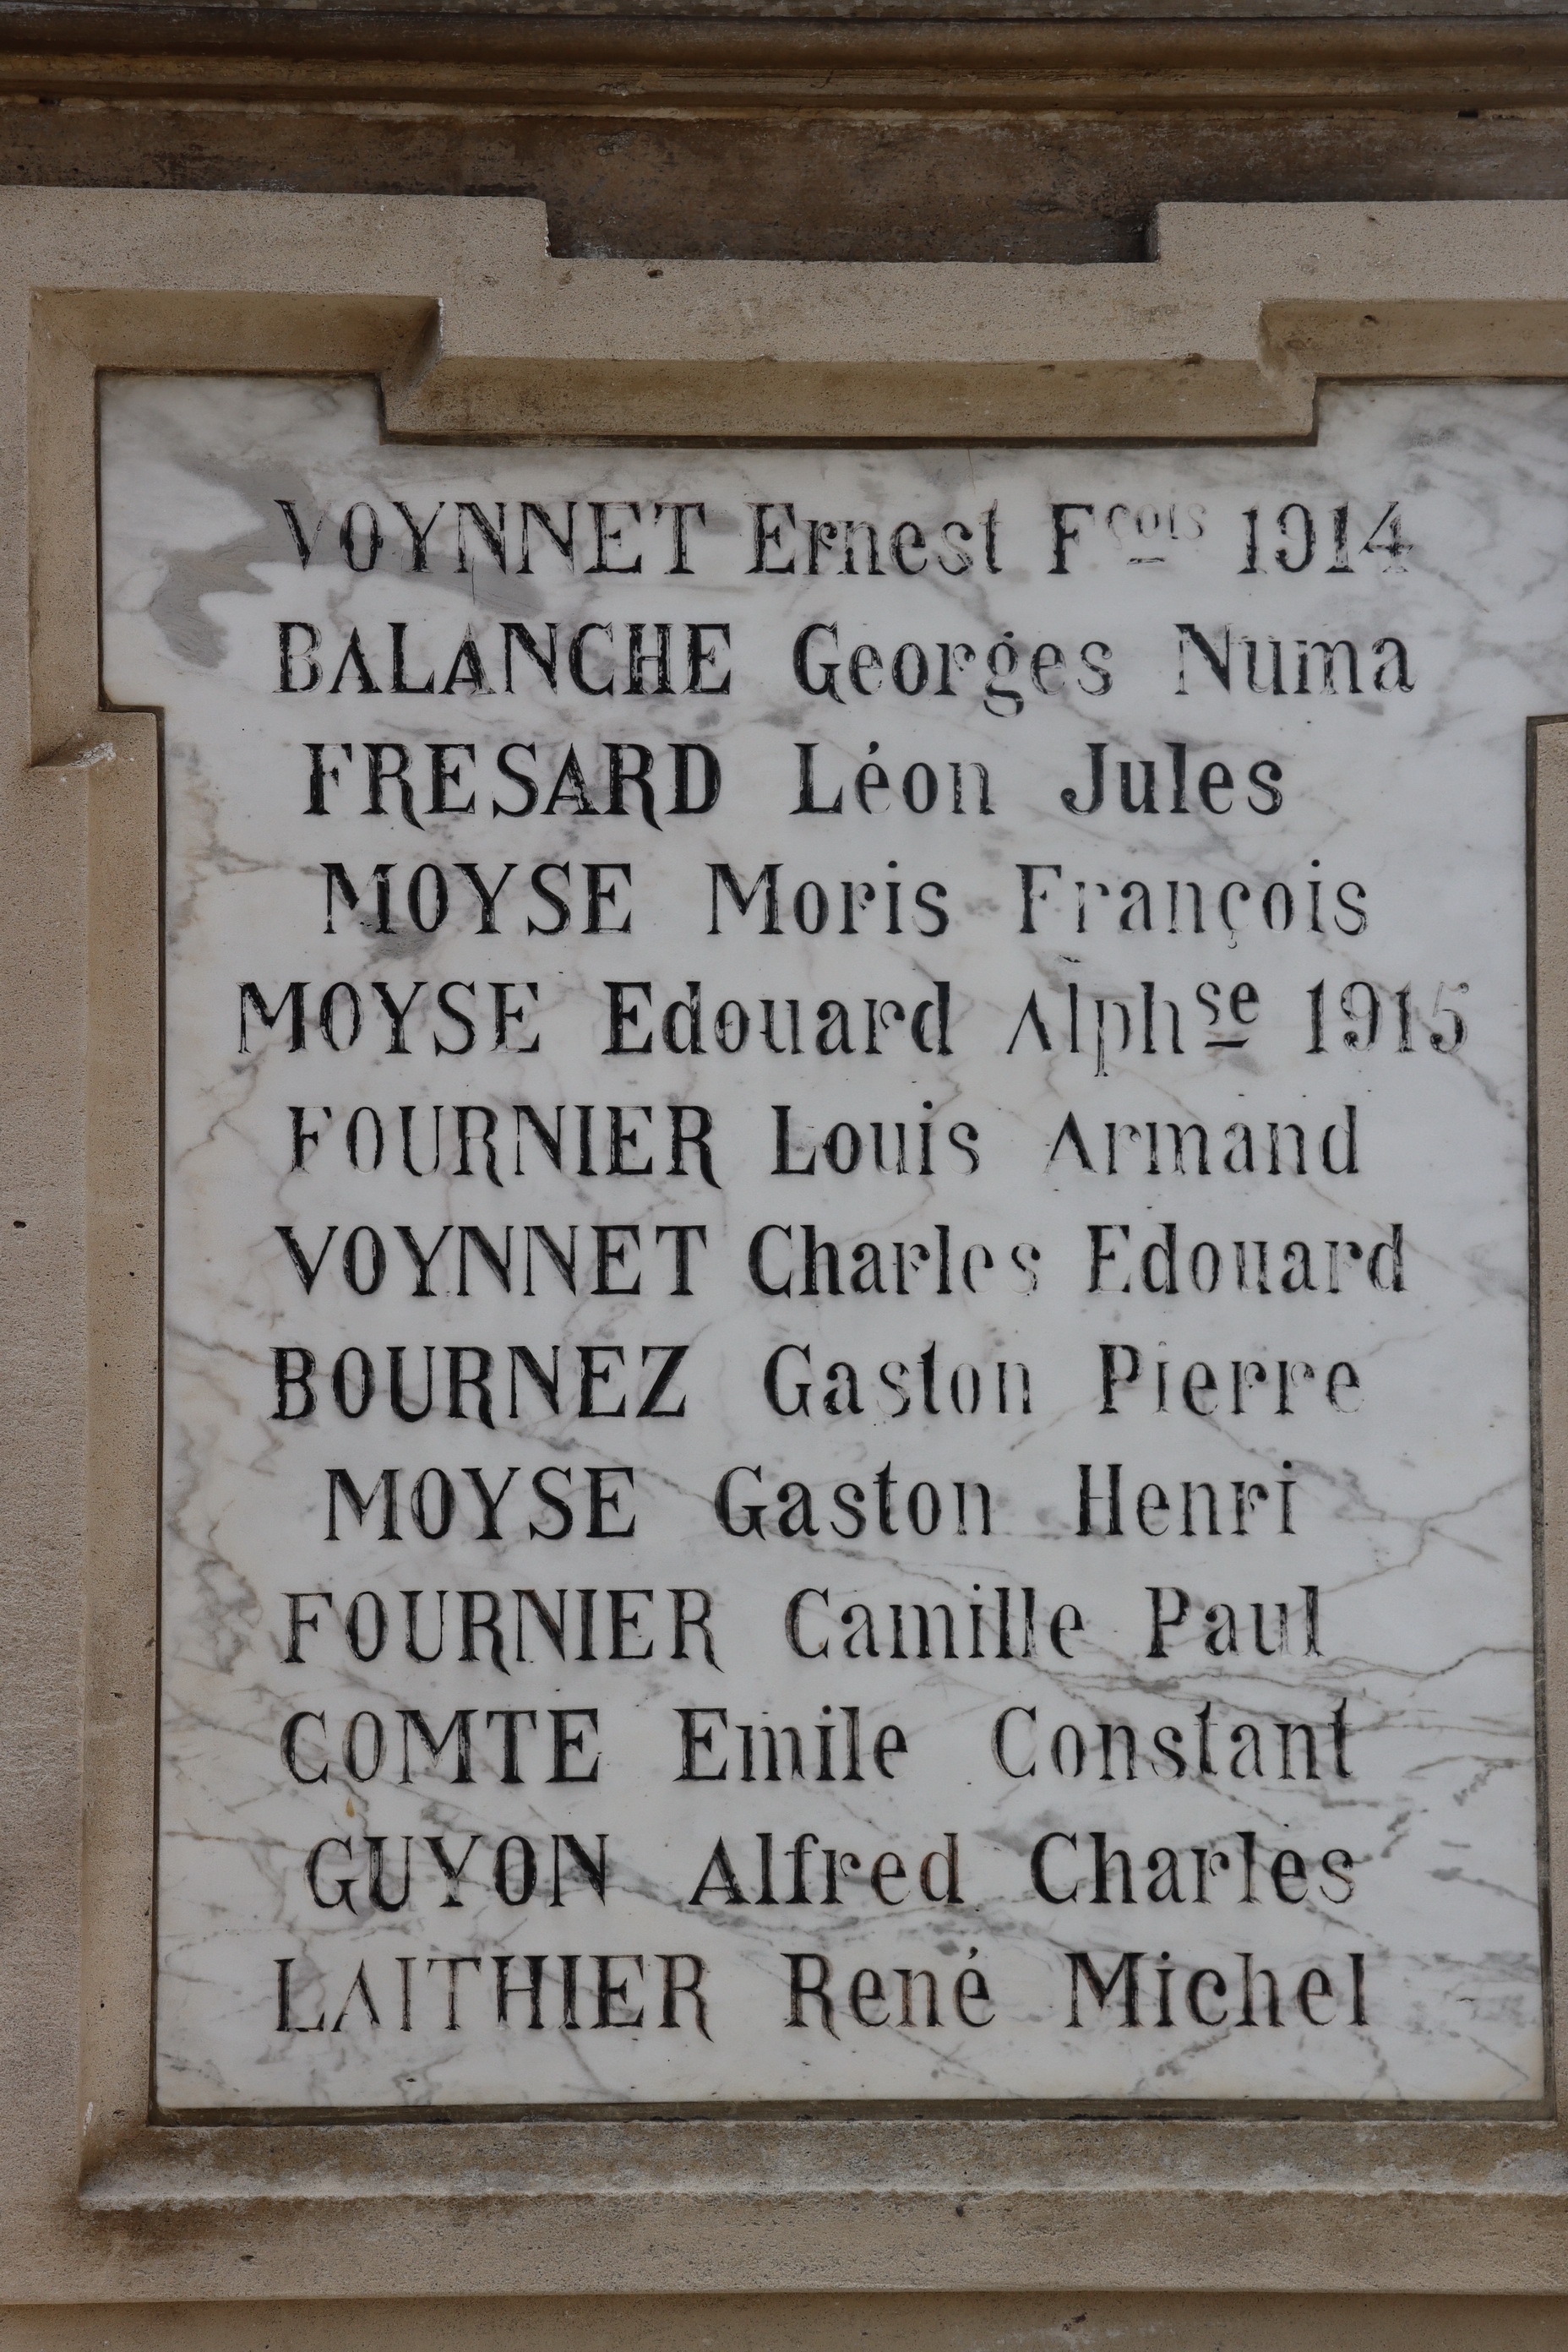 VOYNNET Ernest Fçois 1914
BALANCHE Georges Numa
FRESARD Léon Jules
MOYSE Moris François
MOYSE Edouard Alphse 1915
FOURNIER Louis Armand
VOYNNET Charles Edouard
BOURNEZ Gaston Pierre
MOYSE Gaston Henri
FOURNIER Camille Paul
COMTE Emile Constant
GUYON Alfred Charles
LAITHIER René Michel